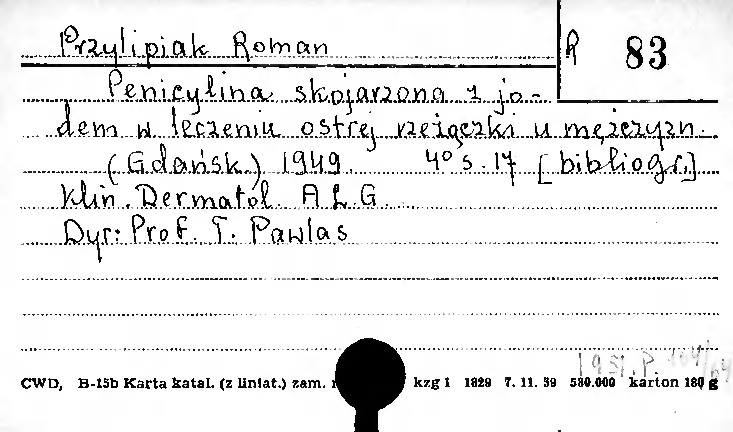 Przylipiak Roman R 83
Penicylina skojarzona z jo-
dem w leczeniu ostrej rzeżączki u mężczyzn.
(Gdańsk.) 1949. 4° s. 17 [bibliogr.]
Klin. Dermatol. A L G.
Dyr: Prof. T. Pawlas
1951. P.
CWD, B-15b Karta katal. (z liniat.) zam. kzg 1 1829 7. 11. 59 580.000 karton 180 g